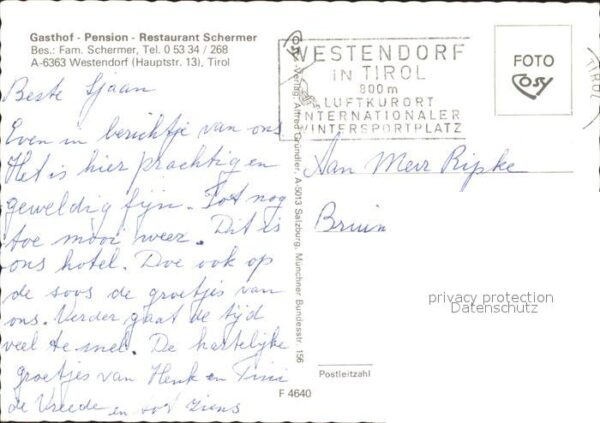 Gasthof - Pension - Restaurant Schermer
Bes.: Fam. Schermer, Tel. 0 53 34 / 268
A-6363 Westendorf (Hauptstr. 13), Tirol
WESTENDORF
IN TIROL
800m
LUFTKURORT
INTERNATIONALER
WINTERSPORTPLATZ
FOTO
Cosy
TIROL
Beste Sjaan
Even in berichtje van ons
Het is hier prachtig en
geweldig fijn. Tot nog
toe mooi weer. Dit is
ons hotel. Doe ook op
de soos de groetjes van
ons. Verder gaat de tijd
veel te snel. De hartelijke
groetjes van Henk en Tini
de Vreede en tot ziens
Verlag Alfred Gründler, A-5013 Salzburg, Münchner Bundesstr. 156
Aan Mevr Ripke
Bruin
privacy protection
Datenschutz
Postleitzahl
F 4640